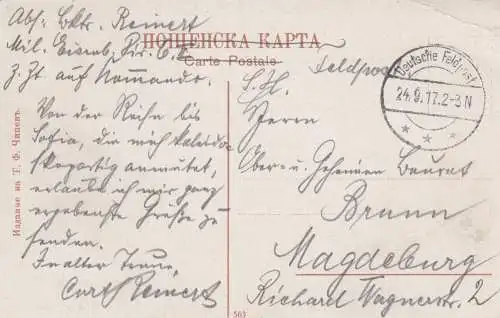 Abs: Bktr. Reinert
Mil. Eisenb. Dir. 6
Z. Zt. auf Kommando.
ПОЩЕНСКА КАРТА
Carte Postale
Feldpost
Deutsche Feldpost
24.9.17.2-3N
Von der Reise bis
Sofia, die mich kaleido-
skopartig anmutet,
erlaube ich mir ganz
ergebenste Grüße zu
senden.
In alter Treue
Curt Reinert
S. H.
Herrn
Ober- u. Geheimen Baurat
Brunn
Magdeburg
Richard Wagnerstr. 2
Издание на Т. Ф. Чипевъ.
503